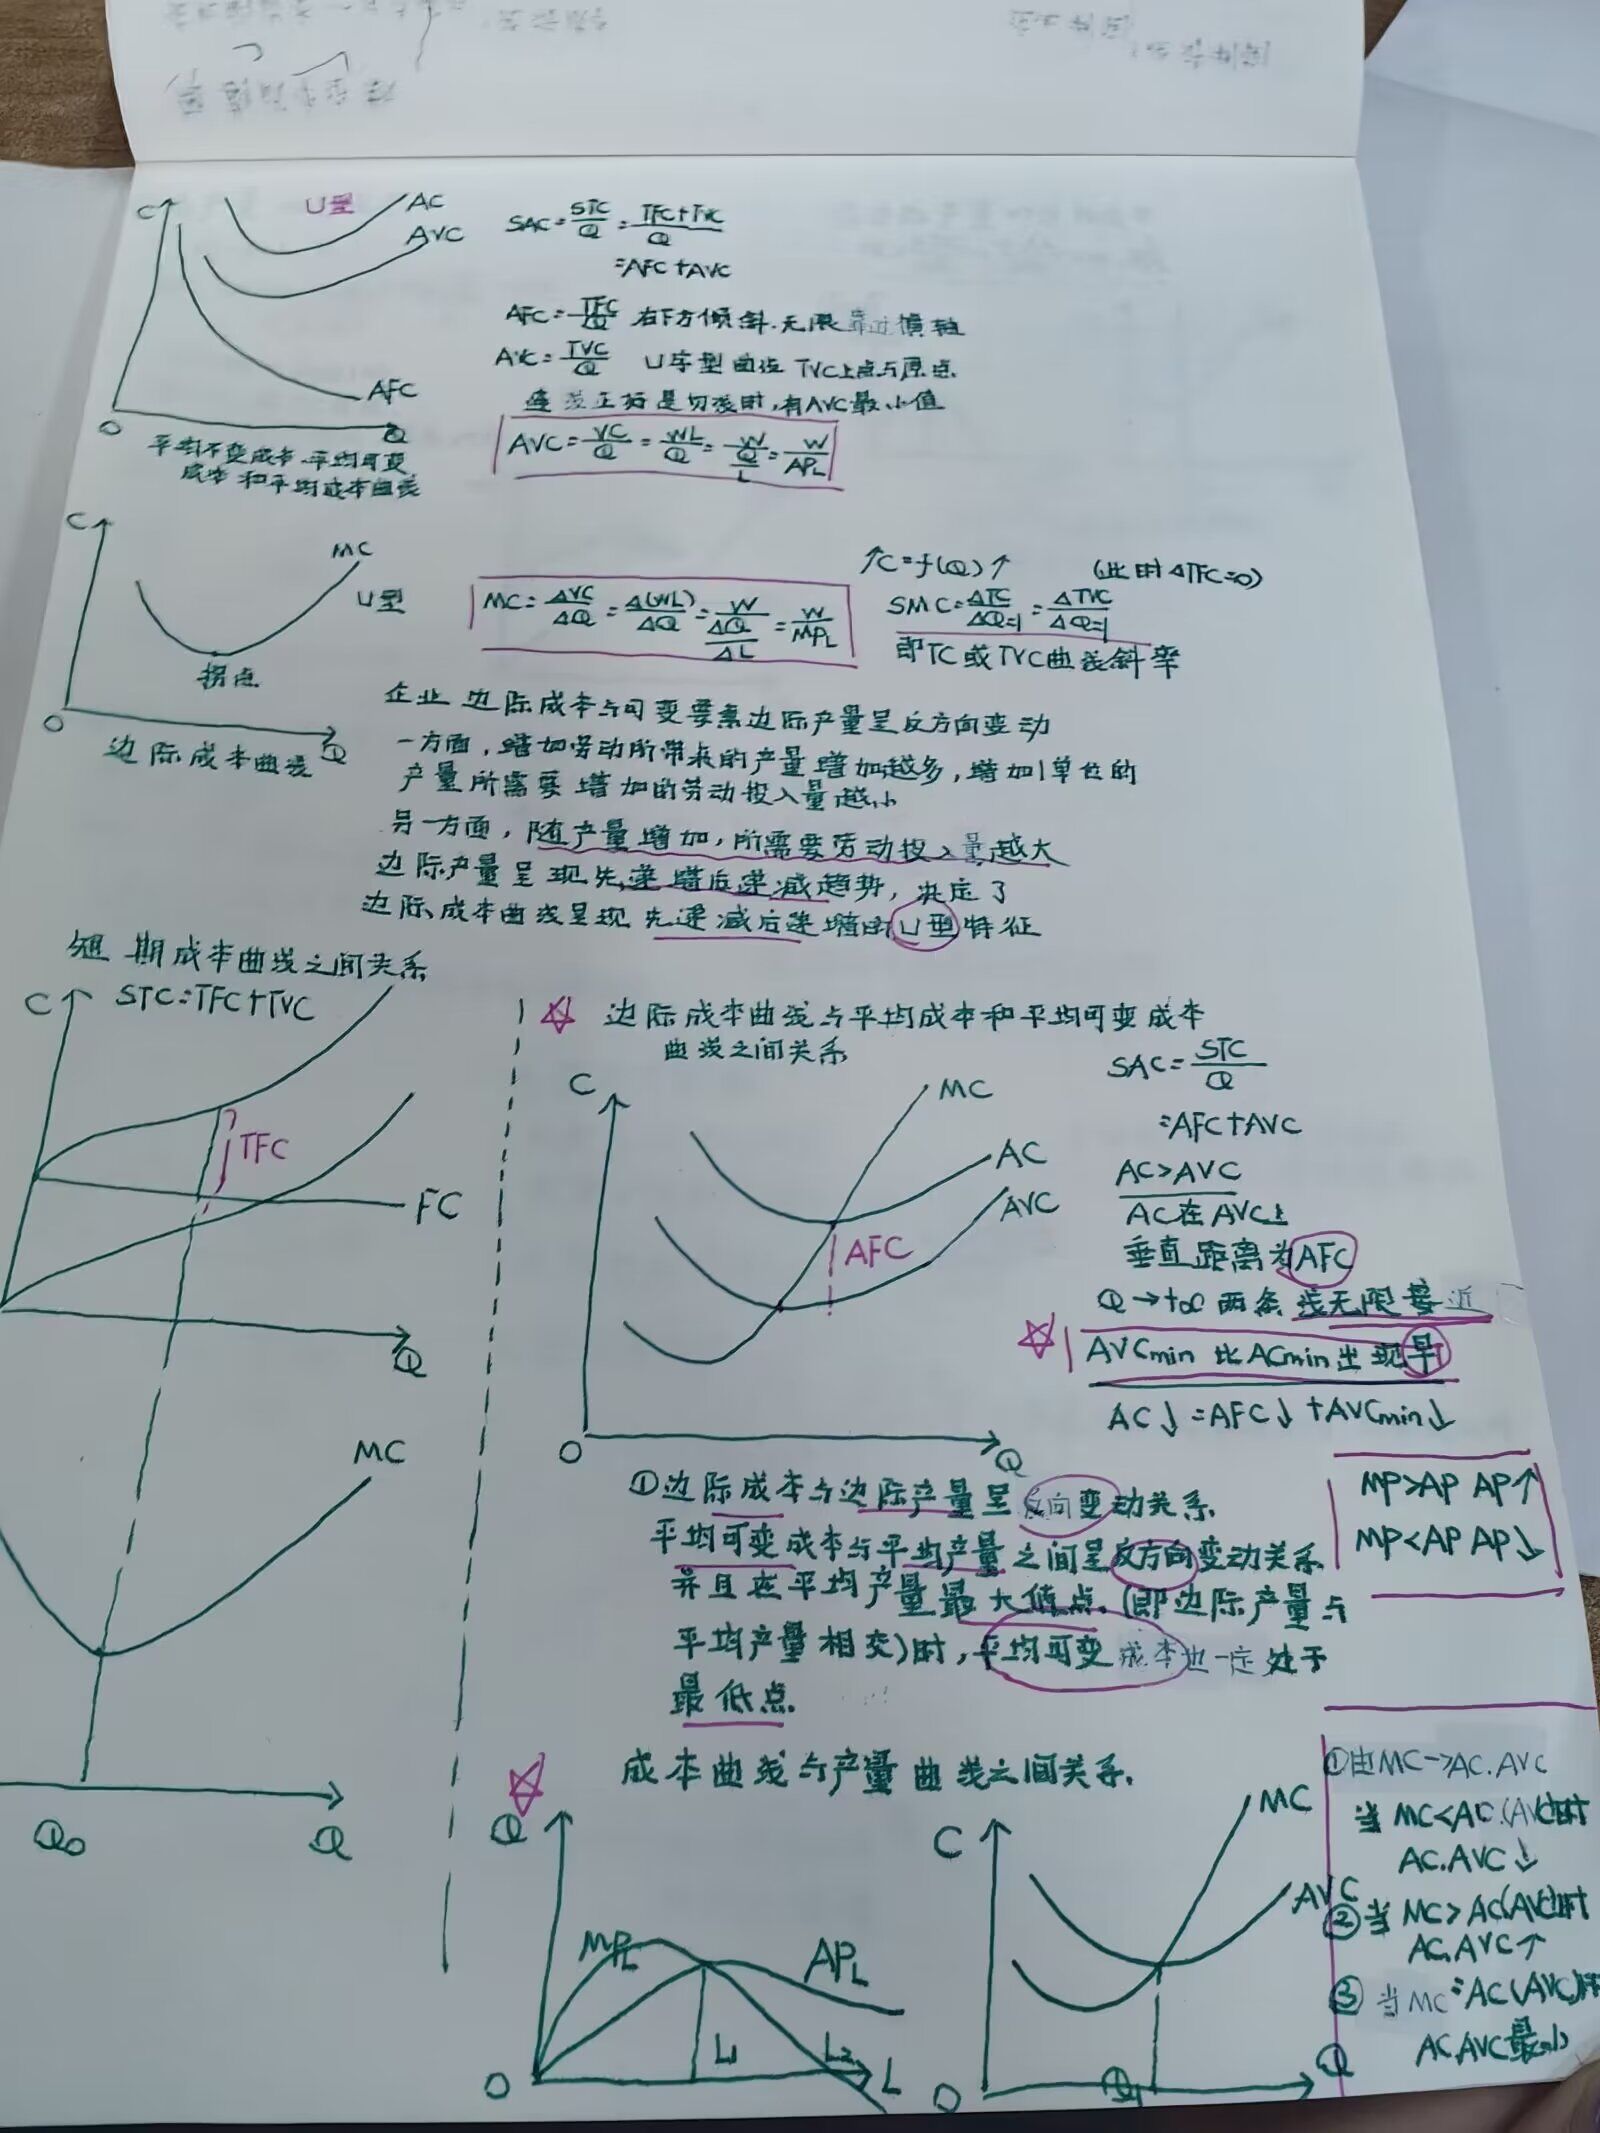 C
U型
AC
AVC
AFC
O
Q
平均不变成本、平均可变
成本和平均成本曲线
SAC=STC/Q=TFC+TVC/Q
=AFC+AVC
AFC=TFC/Q 右下方倾斜.无限靠近横轴
AVC=TVC/Q U字型曲线 TVC上点与原点
连线正好是切线时,有AVC最小值
AVC=VC/Q=WL/Q=W/(Q/L)=W/APL
C
MC
U型
拐点
O
Q
边际成本曲线
MC=ΔVC/ΔQ=Δ(WL)/ΔQ=W/(ΔQ/ΔL)=W/MPL
↑C=f(Q)↑ (此时ΔTFC=0)
SMC=ΔTC/ΔQ=1=ΔTVC/ΔQ=1
即TC或TVC曲线斜率
企业边际成本与可变要素边际产量呈反方向变动
一方面,增加劳动所带来的产量增加越多,增加1单位的
产量所需要增加的劳动投入量越小
另一方面,随产量增加,所需要劳动投入量越大
边际产量呈现先递增后递减趋势,决定了
边际成本曲线呈现先递减后递增的U型特征
短期成本曲线之间关系
C
STC=TFC+TVC
TFC
FC
Q
MC
Q0
Q
☆ 边际成本曲线与平均成本和平均可变成本
曲线之间关系
C
MC
AC
AVC
AFC
O
Q
SAC=STC/Q
=AFC+AVC
AC>AVC
AC在AVC上
垂直距离为AFC
Q→+∞两条线无限接近
☆ AVCmin比ACmin出现早
AC↓=AFC↓+AVCmin↓
①边际成本与边际产量呈反向变动关系.
平均可变成本与平均产量之间呈反方向变动关系
并且在平均产量最大值点.(即边际产量与
平均产量相交)时,平均可变成本也一定处于
最低点.
MP>AP AP↑
MP<AP AP↓
☆ 成本曲线与产量曲线之间关系.
Q
MPL
APL
L1
L2
O
L
C
MC
AVC
O
Q1
Q
①由MC→AC.AVC
当MC<AC.(AVC)时
AC.AVC↓
②当MC>AC(AVC)时
AC.AVC↑
③当MC=AC(AVC)时
AC.AVC最小